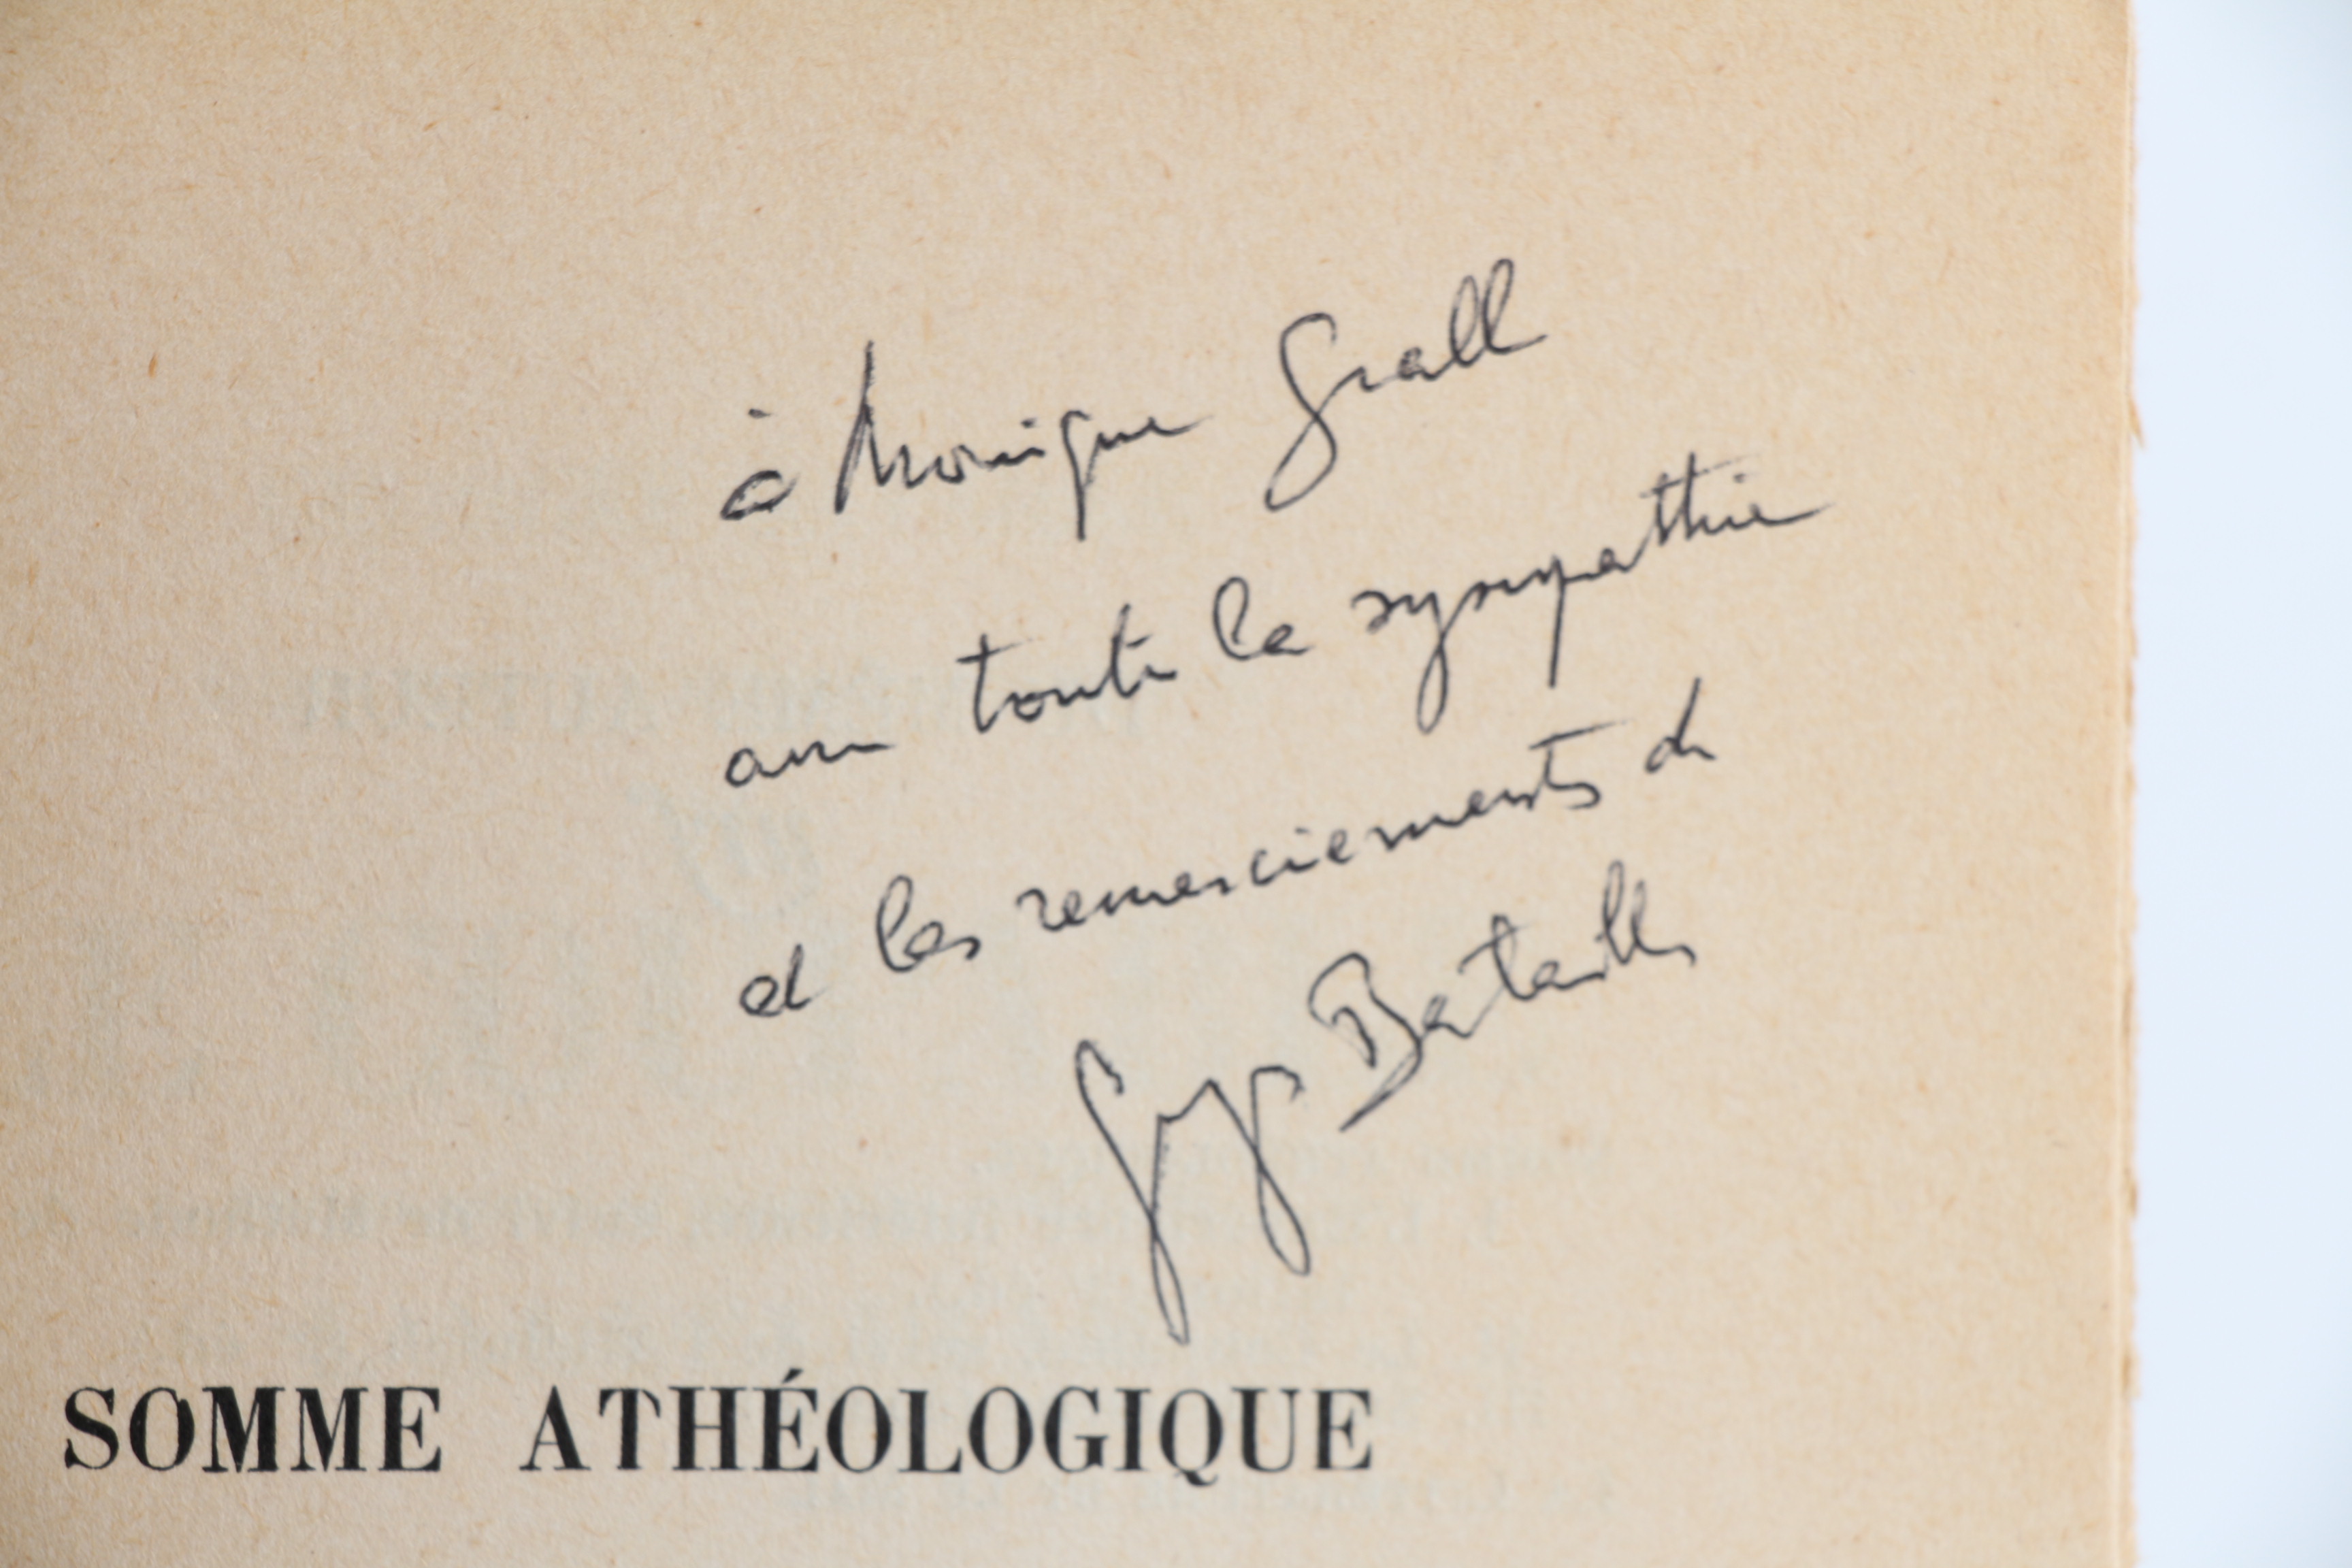 à Monique Grall
avec toute la sympathie
et les remerciements de
Georges Bataille
SOMME ATHÉOLOGIQUE